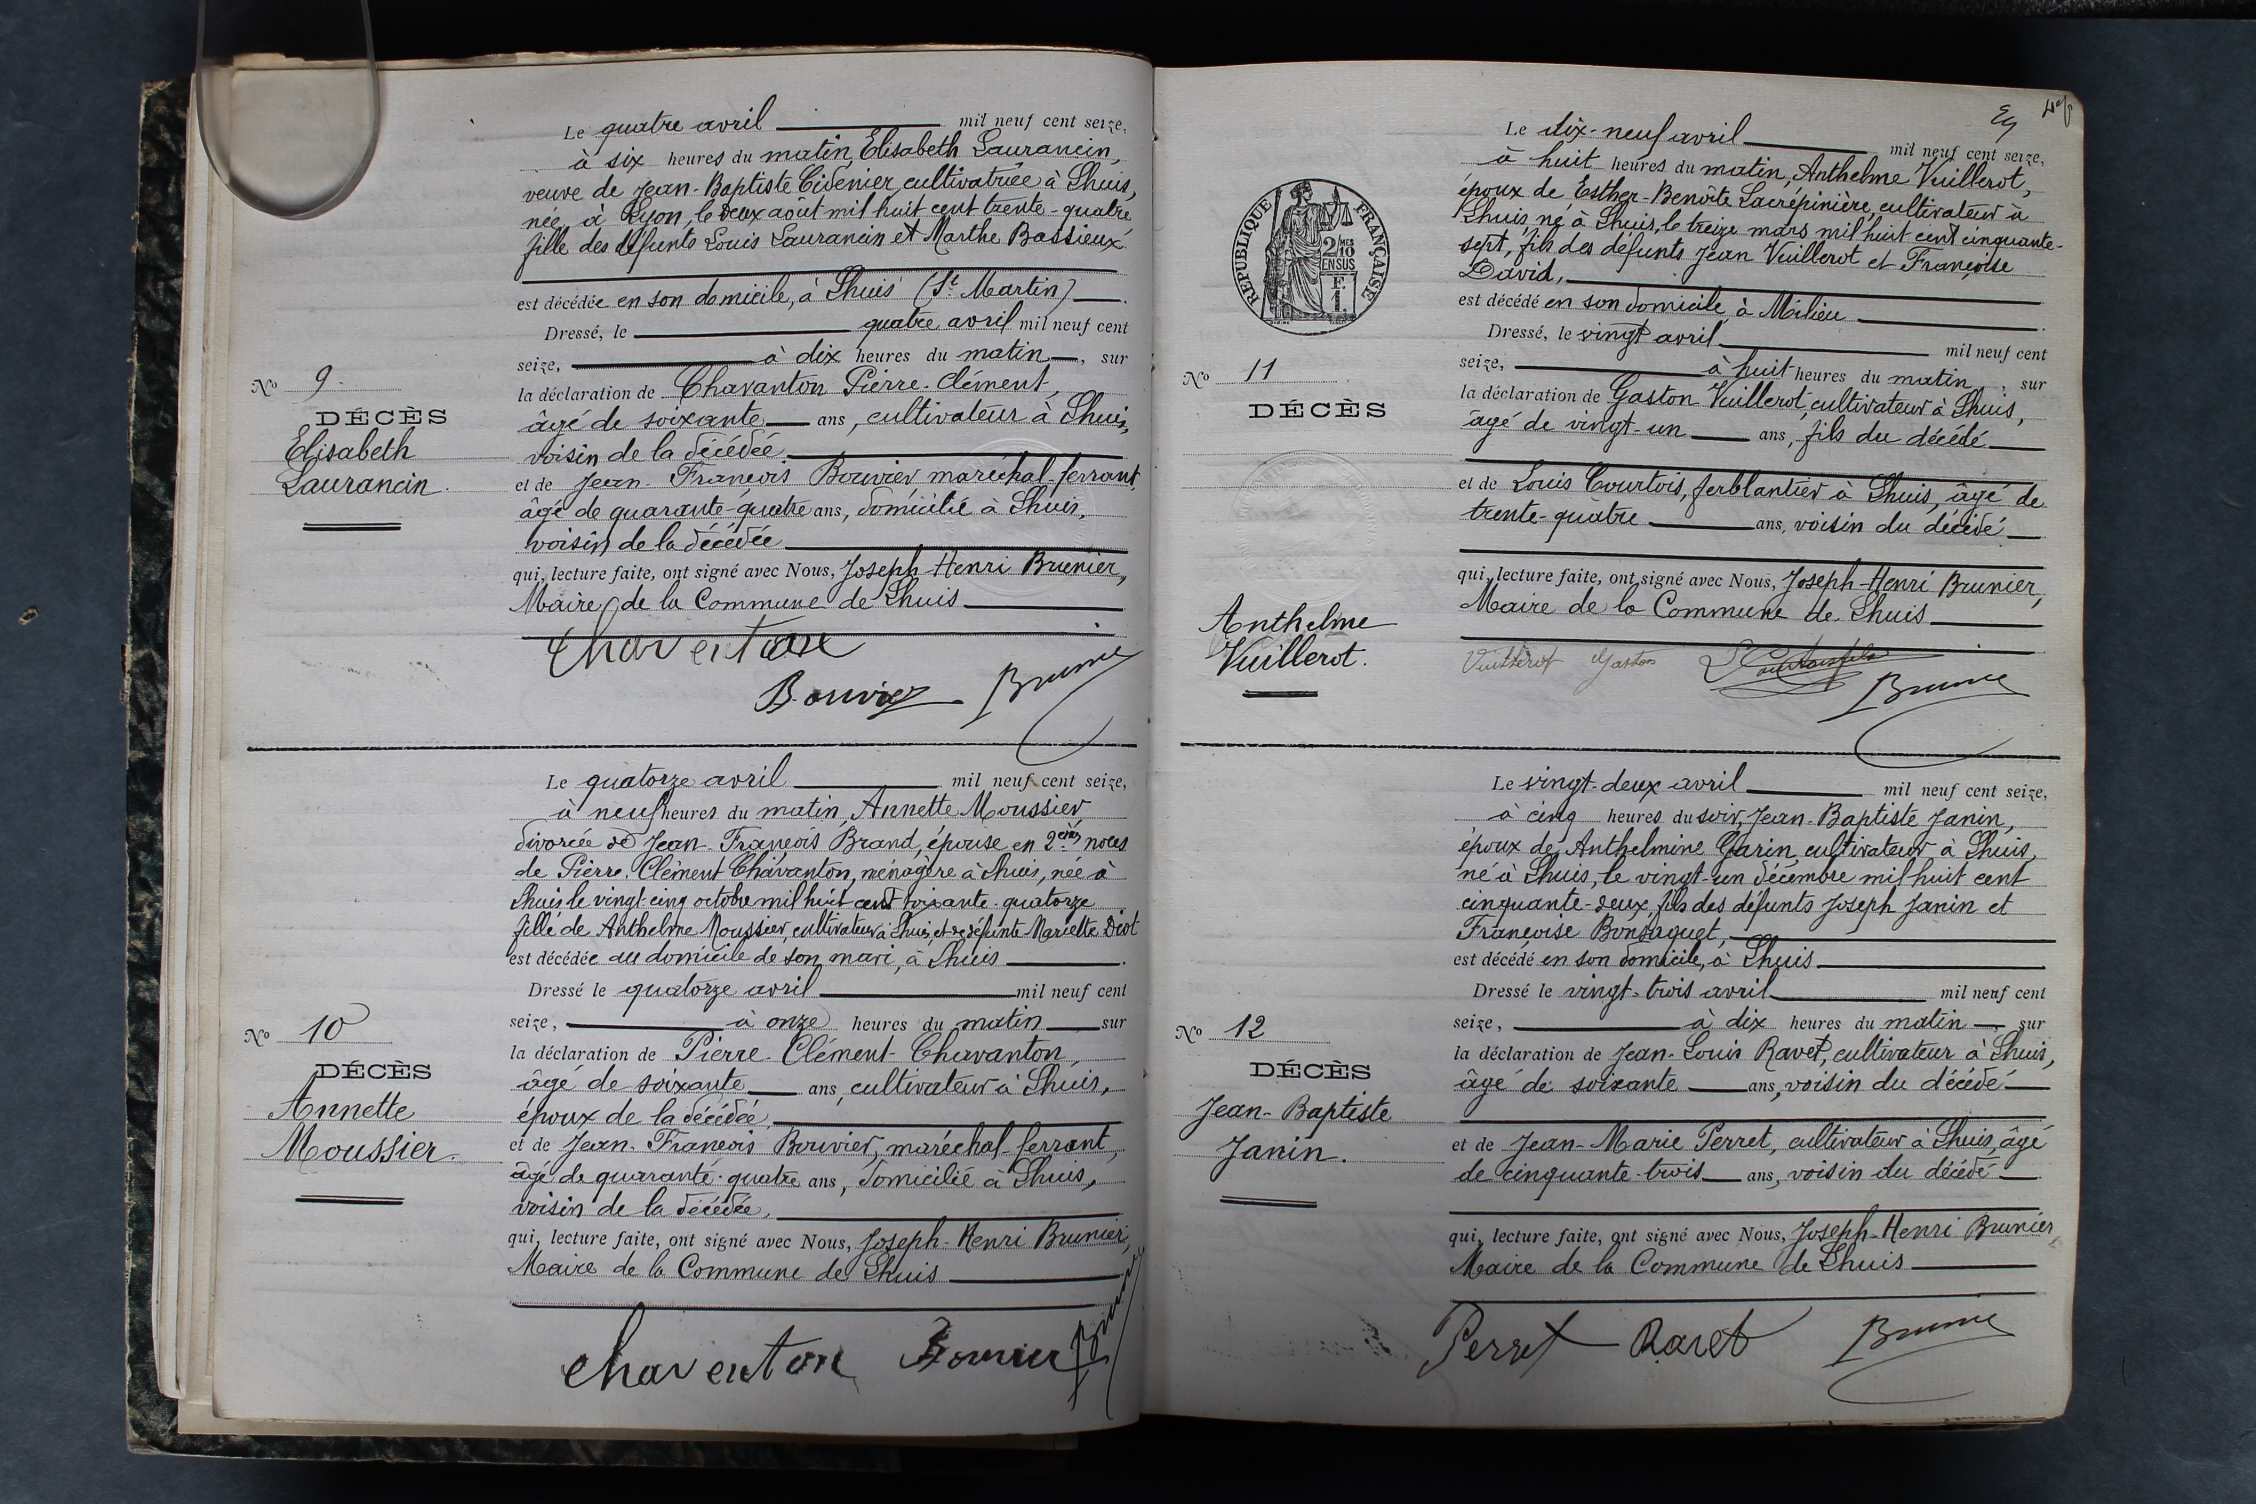 Le quatre avril mil neuf cent seize,
à six heures du matin, Elisabeth Laurancin,
veuve de Jean-Baptiste Cidenier, cultivatrice à Lhuis,
née à Lyon, le deux août mil huit cent trente-quatre
fille des défunts Louis Laurancin et Marthe Bassieux
est décédée en son domicile, à Lhuis (St Martin)
Dressé, le quatre avril mil neuf cent
seize, à dix heures du matin, sur
la déclaration de Chavanton Pierre-Clément,
âgé de soixante ans, cultivateur à Lhuis,
voisin de la décédée
et de Jean-François Bouvier maréchal-ferrant,
âgé de quarante-quatre ans, domicilié à Lhuis,
voisin de la décédée
qui, lecture faite, ont signé avec Nous, Joseph-Henri Brunier,
Maire de la Commune de Lhuis
Chaventon
Bouvier Brunier
No 9.
DÉCÈS
Elisabeth
Laurancin.
Le quatorze avril mil neuf cent seize,
à neuf heures du matin, Annette Moussier,
divorcée de Jean-François Brand, épouse en 2èmes noces
de Pierre-Clément Chavanton, ménagère à Lhuis, née à
Lhuis le vingt-cinq octobre mil huit cent soixante-quatorze
fille de Anthelme Moussier, cultivateur à Lhuis, et de défunte Mariette Diot
est décédée au domicile de son mari, à Lhuis
Dressé le quatorze avril mil neuf cent
seize, à onze heures du matin sur
la déclaration de Pierre-Clément Chavanton,
âgé de soixante ans, cultivateur à Lhuis,
époux de la décédée,
et de Jean-François Bouvier, maréchal-ferrant,
âgé de quarante-quatre ans, domicilié à Lhuis,
voisin de la décédée,
qui, lecture faite, ont signé avec Nous, Joseph-Henri Brunier,
Maire de la Commune de Lhuis
Chaventon Bouvier Brunier
No 10
DÉCÈS
Annette
Moussier.
RÉPUBLIQUE FRANÇAISE
2/10MES
EN SUS
F.
1
Le dix-neuf avril mil neuf cent seize,
à huit heures du matin, Anthelme Vuillerot,
époux de Esther-Benoîte Lacrépinière, cultivateur à
Lhuis, né à Lhuis, le treize mars mil huit cent cinquante-
sept, fils des défunts Jean Vuillerot et Françoise
David,
est décédé en son domicile, à Milieu
Dressé, le vingt avril mil neuf cent
seize, à huit heures du matin, sur
la déclaration de Gaston Vuillerot, cultivateur à Lhuis,
âgé de vingt-un ans, fils du décédé
et de Louis Courtois, ferblantier à Lhuis, âgé de
trente-quatre ans, voisin du décédé
qui, lecture faite, ont signé avec Nous, Joseph-Henri Brunier,
Maire de la Commune de Lhuis
Vuillerot Gaston L Courtois fils
Brunier
No 11
DÉCÈS
Anthelme
Vuillerot.
Le vingt-deux avril mil neuf cent seize,
à cinq heures du soir, Jean-Baptiste Janin,
époux de Anthelmine Garin, cultivateur à Lhuis,
né à Lhuis, le vingt-un décembre mil huit cent
cinquante-deux, fils des défunts Joseph Janin et
Françoise Bonjaquet,
est décédé en son domicile, à Lhuis
Dressé le vingt-trois avril mil neuf cent
seize, à dix heures du matin, sur
la déclaration de Jean-Louis Ravet, cultivateur à Lhuis,
âgé de soixante ans, voisin du décédé
et de Jean-Marie Perret, cultivateur à Lhuis, âgé
de cinquante-trois ans, voisin du décédé
qui, lecture faite, ont signé avec Nous, Joseph-Henri Brunier,
Maire de la Commune de Lhuis
Perret Ravet Brunier
No 12
DÉCÈS
Jean-Baptiste
Janin.